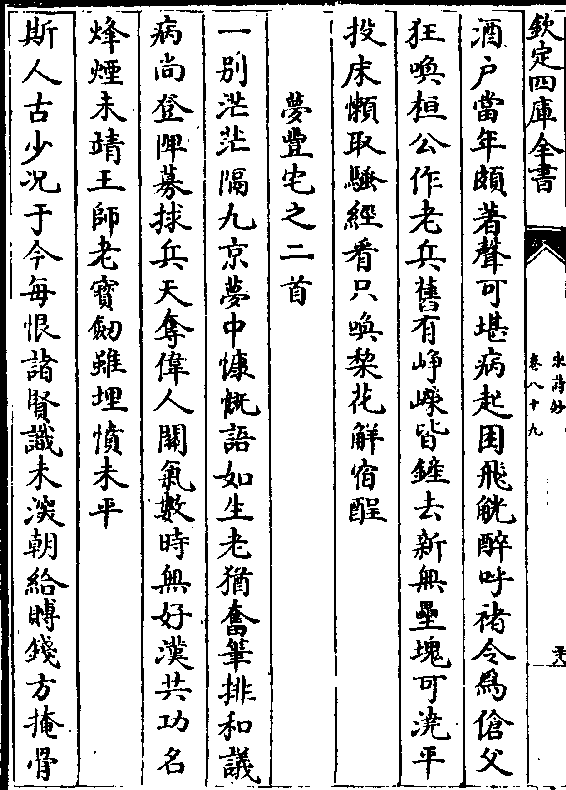 欽定四庫全書
宋詩鈔
卷八十九
酒户當年頗著聲可堪病起困飛觥醉呼褚令為傖父
狂喚桓公作老兵舊有崢嶸皆鏟去新無壘塊可澆平
投床懶取騷經看只喚棃花解宿酲
夢豐宅之二首
一别茫茫隔九京夢中慷慨語如生老猶奮筆排和議
病尚登陴募捄兵天奪偉人關氣數時無好漢共功名
烽煙未靖王師老寶劒雖埋憤未平
斯人古少况于今每恨諸賢識未深朝給賻錢方掩骨